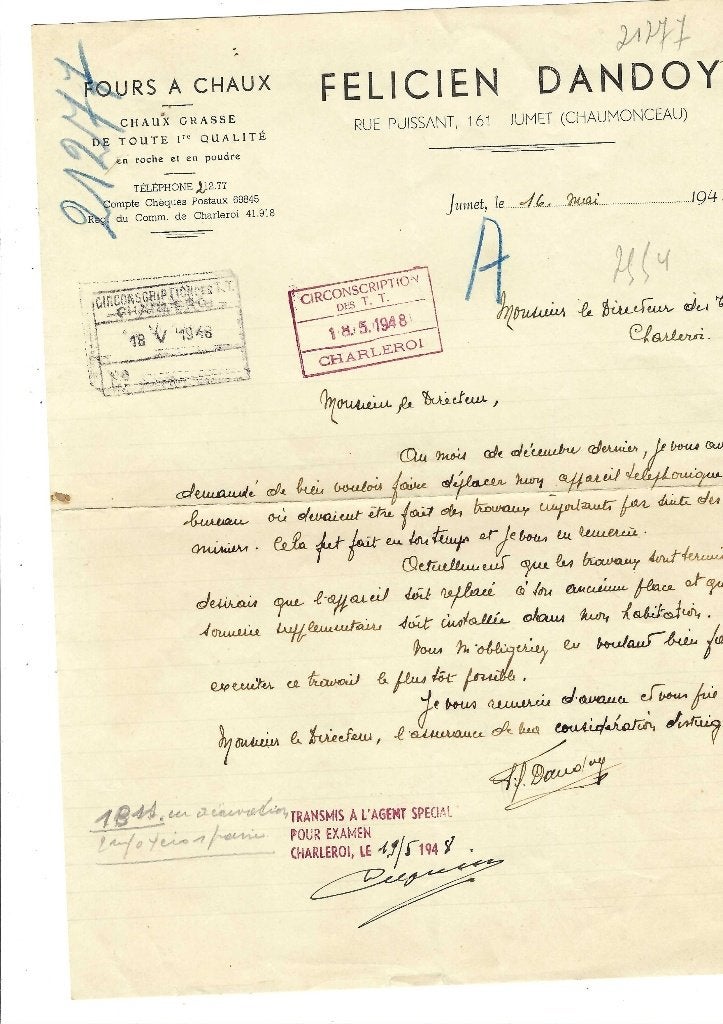 21277
21277
FOURS A CHAUX
CHAUX GRASSE
DE TOUTE 1re QUALITÉ
en roche et en poudre
TÉLÉPHONE 212.77
Compte Chèques Postaux 69845
Reg. du Comm. de Charleroi 41.918
FELICIEN DANDOY
RUE PUISSANT, 161 JUMET (CHAUMONCEAU)
Jumet, le 16 mai 194
A
7554
CIRCONSCRIPTION DES T.T.
CHARLEROI
18 V 1948
No
CIRCONSCRIPTION
DES T. T.
18.5.1948
CHARLEROI
Monsieur le Directeur des T
Charleroi.
Monsieur le Directeur,
Au mois de décembre dernier, je vous av
demandé de bien vouloir faire déplacer mon appareil téléphonique
bureau où devaient être fait des travaux importants par suite des
miniers. Cela fut fait en son temps et je vous en remercie.
Actuellement que les travaux sont termi
désirais que l'appareil soit replacé à son ancienne place et qu
sonnerie supplémentaire soit installée dans mon habitation.
Vous m'obligeriez en voulant bien fa
executer ce travail le plus tôt possible.
Je vous remercie d'avance et vous prie
Monsieur le Directeur, l'assurance de ma considération disting
F. Dandoy
TRANSMIS À L'AGENT SPECIAL
POUR EXAMEN
CHARLEROI, LE 19/5 1948.